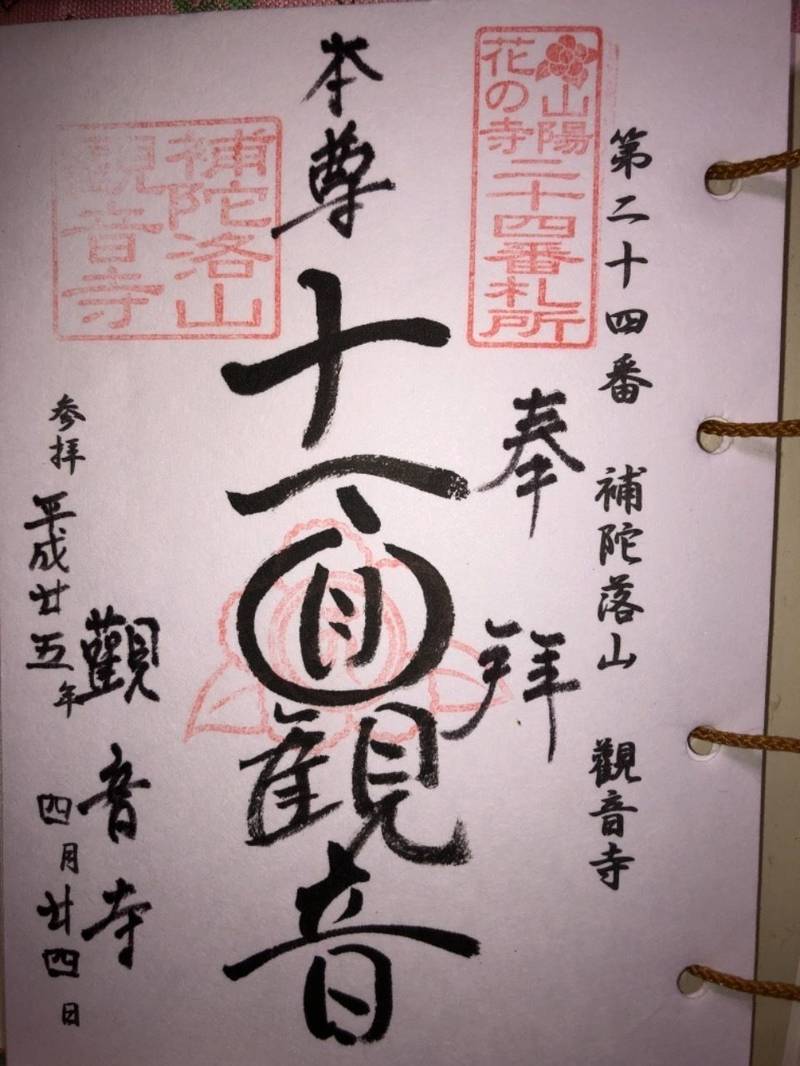 第二十四番 補陀落山 觀音寺
山陽
花の寺
二十四番札所
奉拝
本尊
十一面観音
補陀落山
観音寺
觀音寺
参拝 平成廿五年 四月廿四日